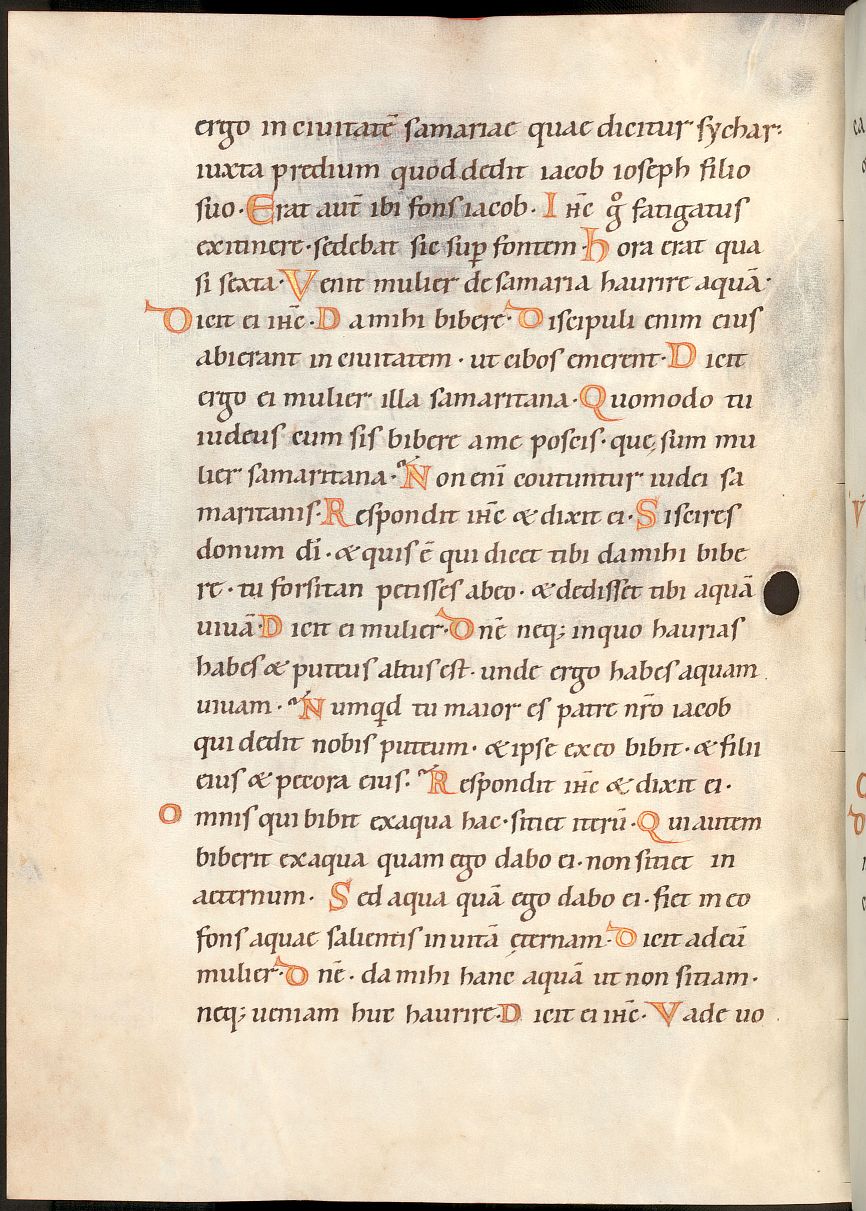 ergo in ciuitatē samariae quae dicitur sychar:
iuxta predium quod dedit iacob ioseph filio
suo. Erat aut̄ ibi fons iacob. Ihc̄ gͦ fatigatus
ex itinere. sedebat sic sup̱ fontem. hora erat qua
si sexta. Venit mulier de samaria haurire aquā.
Dicit ei ihc̄. Da mihi bibere. Discipuli enim eius
abierant in ciuitatem. ut cibos emerent. Dicit
ergo ei mulier illa samaritana. Quomodo tu
iudeus cum sis bibere a me poscis. quę sum mu
lier samaritana. Non eni̅ coutuntur iudei sa
maritanis. Respondit ihc̄ & dixit ei. Si scires
donum di̅. & quis ē qui dicet tibi da mihi bibe
re. tu forsitan petisses ab eo. & dedisset tibi aquā
uiuā. Dicit ei mulier. Dnē neq; in quo haurias
habes & puteus altus est. unde ergo habes aquam
uiuam. Numqd̄ tu maior es patre nr̄o iacob
qui dedit nobis puteum. & ipse ex eo bibit. & filii
eius & pecora eius. Respondit ihc̄ & dixit ei.
Omnis qui bibit ex aqua hac. sitiet iterū. Qui autem
biberit ex aqua quam ego dabo ei. non sitiet in
aeternum. Sed aqua quā ego dabo ei. fiet in eo
fons aquae salientis in uitā ęternam. Dicit ad eū
mulier. Dnē. da mihi hanc aquā ut non sitiam.
neq; ueniam huc haurire. Dicit ei ihc̄. Vade uo